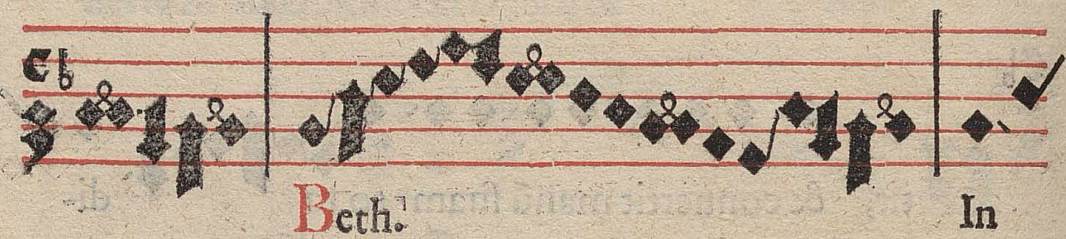 Beth. In